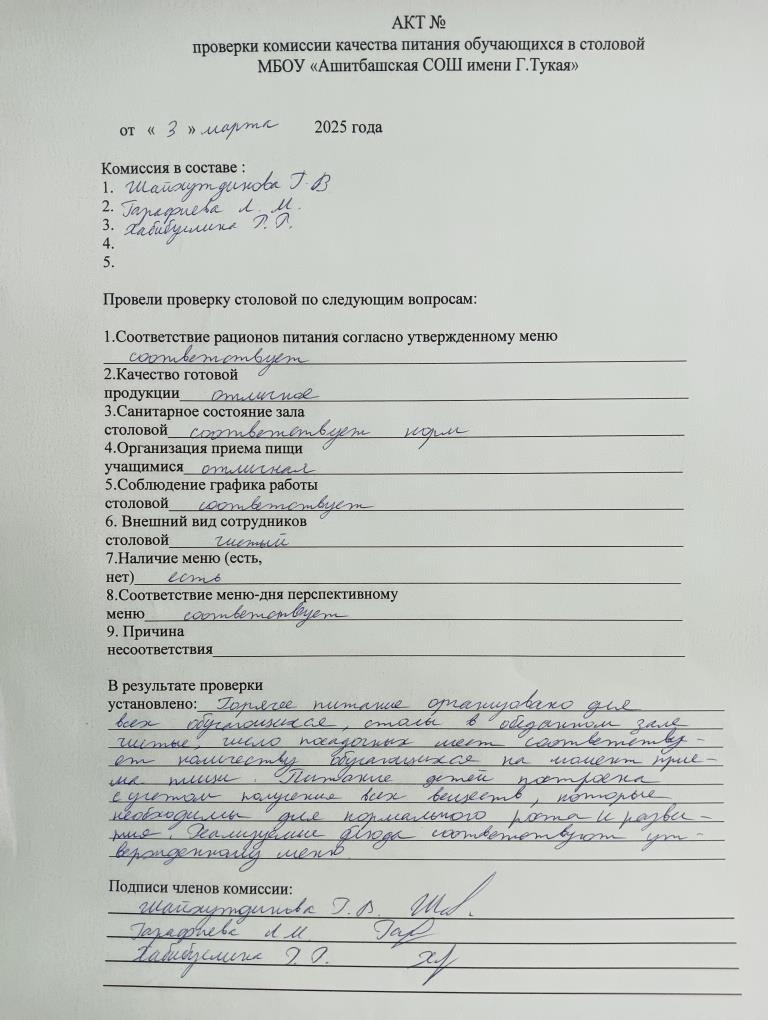 АКТ №
проверки комиссии качества питания обучающихся в столовой
МБОУ «Ашитбашская СОШ имени Г.Тукая»
от « 3 » марта 2025 года
Комиссия в составе :
1. Шайхутдинова Г. В
2. Гарафиева Л. М.
3. Хабибуллина Г. Г.
4.
5.
Провели проверку столовой по следующим вопросам:
1.Соответствие рационов питания согласно утвержденному меню
соответствует
2.Качество готовой
продукции отличное
3.Санитарное состояние зала
столовой соответствует норм
4.Организация приема пищи
учащимися отличная
5.Соблюдение графика работы
столовой соответствует
6. Внешний вид сотрудников
столовой чистый
7.Наличие меню (есть,
нет) есть
8.Соответствие меню-дня перспективному
меню соответствует
9. Причина
несоответствия
В результате проверки
установлено: Горячее питание организовано для
всех обучающихся, столы в обеденном зале
чистые, число посадочных мест соответству-
ет количеству обучающихся на момент прие-
ма пищи. Питание детей построена
с учетом получения всех веществ, которые
необходимы для нормального роста и разви-
тия. Реализуемые блюда соответствуют ут-
вержденному меню.
Подписи членов комиссии:
Шайхутдинова Г. В.
Гарафиева Л М.
Хабибуллина Г. Г.